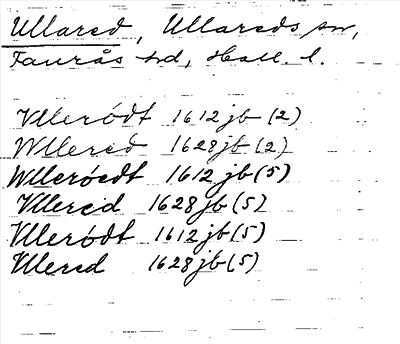 Ullared, Ullareds sn,
Faurås hd, Hall. l.
Vllerødt 1612 jb (2)
Wllered 1628 jb (2)
Wlleröedt 1612 jb (5)
Vllered 1628 jb (5)
Vllerødt 1612 jb (5)
Vllered 1628 jb (5)